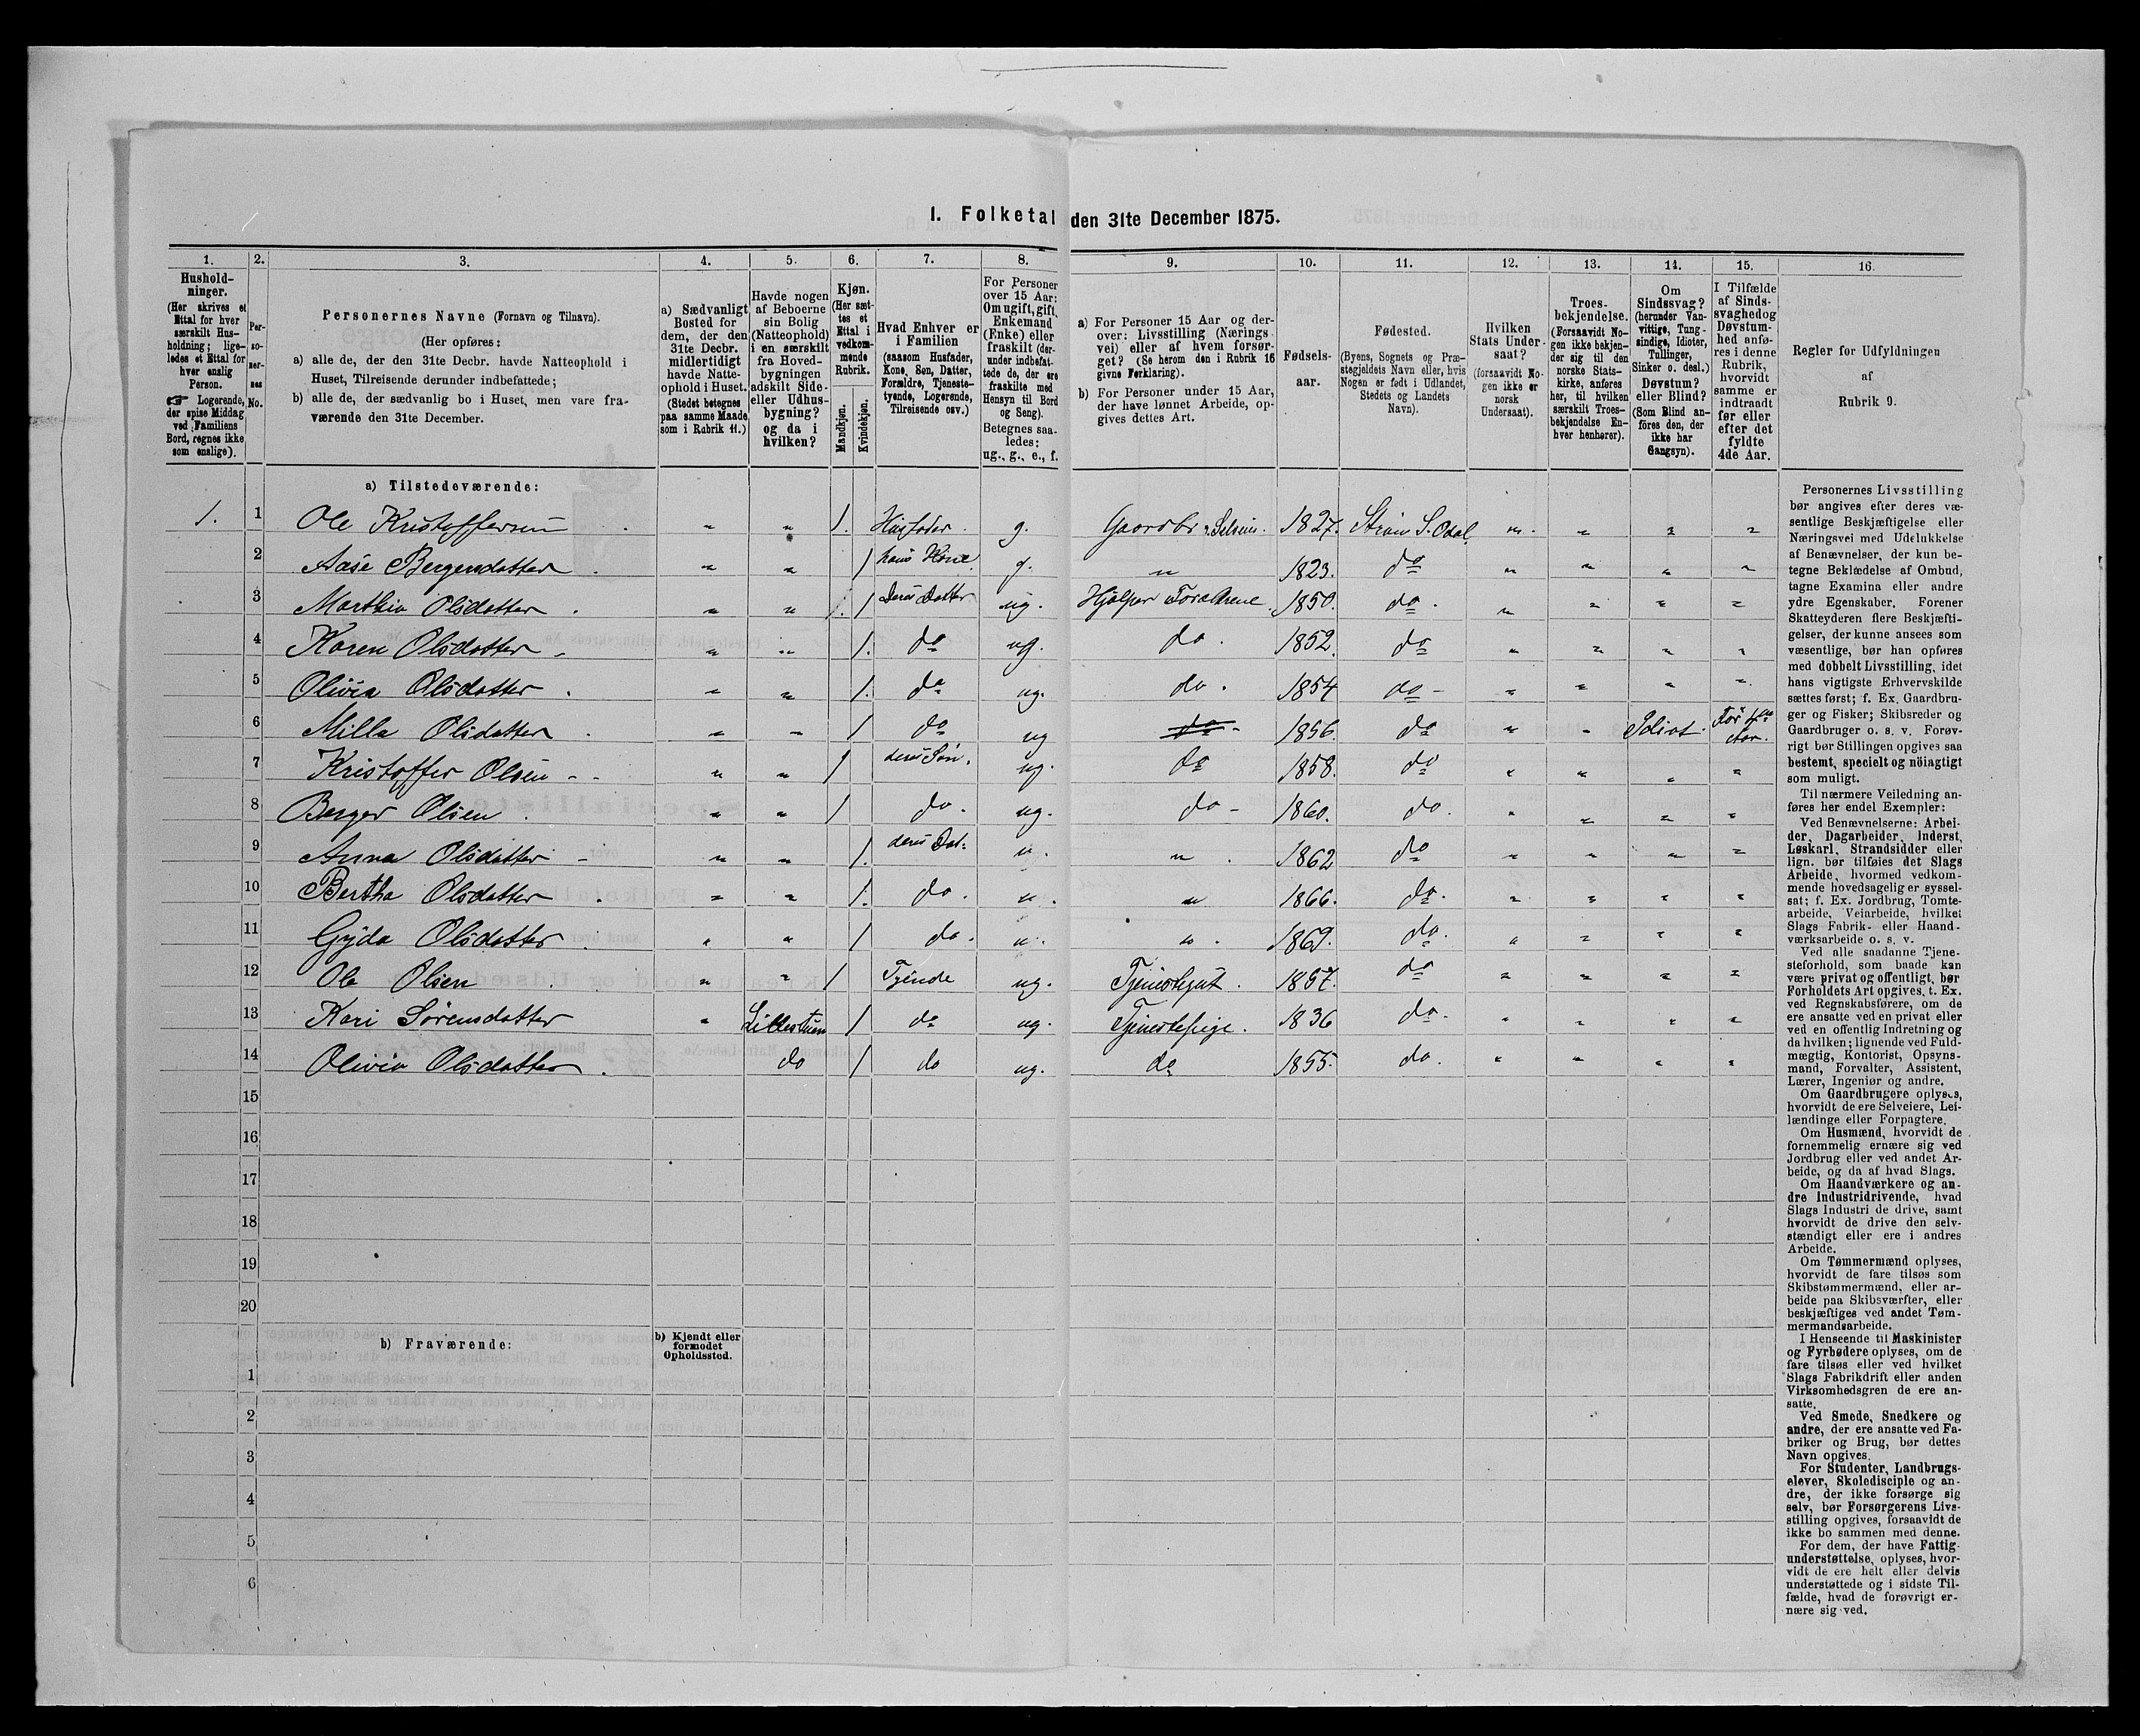 I. Folketal den 31te December 1875.
1. 2. 3. 4. 5. 6. 7. 8. 9. 10. 11. 12. 13. 14. 15. 16.
Hushold-
ninger.
(Her skrives et
Ettal for hver
særskilt Hus-
holdning; lige-
ledes et Ettal for
hver enslig
Person.
☞ Logerende,
der spise Middag
ved Familiens
Bord, regnes ikke
som enslige).
Per-
so-
ner-
nes
No.
Personernes Navne (Fornavn og Tilnavn).
(Her opføres:
a) alle de, der den 31te Decbr. havde Natteophold i
Huset, Tilreisende derunder indbefattede;
b) alle de, der sædvanlig bo i Huset, men vare fra-
værende den 31te December.
a) Sædvanligt
Bosted for
dem, der den
31te Decbr.
midlertidigt
havde Natte-
ophold i Huset.
(Stedet betegnes
paa samme Maade
som i Rubrik 11.)
Havde nogen
af Beboerne
sin Bolig
(Natteophold)
i en særskilt
fra Hoved-
bygningen
adskilt Side-
eller Udhus-
bygning?
og da i
hvilken?
Kjøn.
(Her sæt-
tes et
Ettal i
vedkom-
mende
Rubrik.
Mandkjøn.
Kvindekjøn.
Hvad Enhver er
i Familien
(saasom Husfader,
Kone, Søn, Datter,
Forældre, Tjeneste-
tyende, Logerende,
Tilreisende osv.)
For Personer
over 15 Aar:
Om ugift, gift,
Enkemand
(Enke) eller
fraskilt (der-
under indbefat-
tede de, der ere
fraskilte med
Hensyn til Bord
og Seng).
Betegnes saa-
ledes:
ug., g., e., f.
a) For Personer 15 Aar og der-
over: Livsstilling (Nærings-
vei) eller af hvem forsør-
get? (Se herom den i Rubrik 16
givne Forklaring).
b) For Personer under 15 Aar,
der have lønnet Arbeide, op-
gives dettes Art.
Fødsels-
aar.
Fødested.
(Byens, Sognets og Præ-
stegjeldets Navn eller, hvis
Nogen er født i Udlandet,
Stedets og Landets
Navn).
Hvilken
Stats Under-
saat?
(forsaavidt No-
gen ikke er
norsk
Undersaat).
Troes-
bekjendelse.
(Forsaavidt No-
gen ikke bekjen-
der sig til den
norske Stats-
kirke, anføres
her, til hvilken
særskilt Troes-
bekjendelse En-
hver henhører).
Om
Sindssvag?
(herunder Van-
vittige, Tung-
sindige, Idioter,
Tullinger,
Sinker o. desl.)
Døvstum?
eller Blind?
(Som Blind an-
føres den, der
ikke har
Gangsyn).
I Tilfælde
af Sinds-
svaghed og
Døvstum-
hed anfø-
res i denne
Rubrik,
hvorvidt
samme er
indtraadt
før eller
efter det
fyldte
4de Aar.
Regler for Udfyldningen
af
Rubrik 9.
a) Tilstedeværende:
1. 1 Ole Kristoffersen " " 1. Husfader. g. Gaardbr. Selveier. 1827. Strøm S. Odal " " " "
2 Aase Bergersdatter " " 1 hans Kone g. " 1823. do " " " "
3 Marthia Olsdatter " " 1 Deres Datter ug. Hjælper Forældrene. 1850. do. " " " "
4 Karen Olsdatter " " 1. do ug. do. 1852. do " " " "
5 Olivia Olsdatter " " 1. do ug. do. 1854 do " " " "
6 Milla Olsdatter " " 1 do ug do 1856. do " " Idiot. Før 4de Aar.
7 Kristoffer Olsen " " 1 deres Søn. ug. do 1858. do " " " "
8 Berger Olsen " " 1 do. ug. do 1860. do. " " " "
9 Anna Olsdatter " " 1. deres Dat. " " 1862 do " " " "
10 Bertha Olsdatter " " 1. do. " " 1866. do. " " " "
11 Gyda Olsdatter " " 1 do. " " 1869. do. " " " "
12 Ole Olsen " " 1 Tjende ug. Tjenestegut. 1857. do " " " "
13 Kari Sørensdatter " Lillestuen 1 do ug. Tjenestepige. 1836 do. " " " "
14 Olivia Olsdatter do 1 do ug. do 1855. do. " " " "
15
16
17
18
19
20
b) Fraværende:
b) Kjendt eller
formodet
Opholdssted.
1
2
3
4
5
6
Personernes Livsstilling
bør angives efter deres væ-
sentlige Beskjæftigelse eller
Næringsvei med Udelukkelse
af Benævnelser, der kun be-
tegne Beklædelse af Ombud,
tagne Examina eller andre
ydre Egenskaber. Forener
Skatteyderen flere Beskjæfti-
gelser, der kunne ansees som
væsentlige, bør han opføres
med dobbelt Livsstilling, idet
hans vigtigste Erhvervskilde
sættes først; f. Ex. Gaardbru-
ger og Fisker; Skibsreder og
Gaardbruger o. s. v. Forøv-
rigt bør Stillingen opgives saa
bestemt, specielt og nöiagtigt
som muligt.
Til nærmere Veiledning an-
føres her endel Exempler:
Ved Benævnelserne: Arbei-
der, Dagarbeider, Inderst,
Løskarl, Strandsidder eller
lign. bør tilføies det Slags
Arbeide, hvormed vedkom-
mende hovedsagelig er syssel-
sat; f. Ex. Jordbrug, Tomte-
arbeide, Veiarbeide, hvilket
Slags Fabrik- eller Haand-
værksarbeide o. s. v.
Ved alle saadanne Tjene-
steforhold, som baade kan
være privat og offentligt, bør
Forholdets Art opgives, t. Ex.
ved Regnskabsførere, om de
ere ansatte ved en privat eller
ved en offentlig Indretning og
da hvilken; lignende ved Fuld-
mægtig, Kontorist, Opsyns-
mand, Forvalter, Assistent,
Lærer, Ingeniør og andre.
Om Gaardbrugere oplyses,
hvorvidt de ere Selveiere, Lei-
lændinge eller Forpagtere.
Om Husmænd, hvorvidt de
fornemmelig ernære sig ved
Jordbrug eller ved andet Ar-
beide, og da af hvad Slags.
Om Haandværkere og an-
dre Industridrivende, hvad
Slags Industri de drive, samt
hvorvidt de drive den selv-
stændigt eller ere i andres
Arbeide.
Om Tømmermænd oplyses,
hvorvidt de fare tilsøs som
Skibstømmermænd, eller ar-
beide paa Skibsværfter, eller
beskjæftiges ved andet Tøm-
mermandsarbeide.
I Henseende til Maskinister
og Fyrbødere oplyses, om de
fare tilsøs eller ved hvilket
Slags Fabrikdrift eller anden
Virksomhedsgren de ere an-
satte.
Ved Smede, Snedkere og
andre, der ere ansatte ved Fa-
briker og Brug, bør dettes
Navn opgives.
For Studenter, Landbrugs-
elever, Skoledisciple og an-
dre, der ikke forsørge sig
selv, bør Forsørgerens Livs-
stilling opgives, forsaavidt de
ikke bo sammen med denne.
For dem, der have Fattig-
understøttelse, oplyses, hvor-
vidt de ere helt eller delvis
understøttede og i sidste Til-
fælde, hvad de forøvrigt er-
nære sig ved.